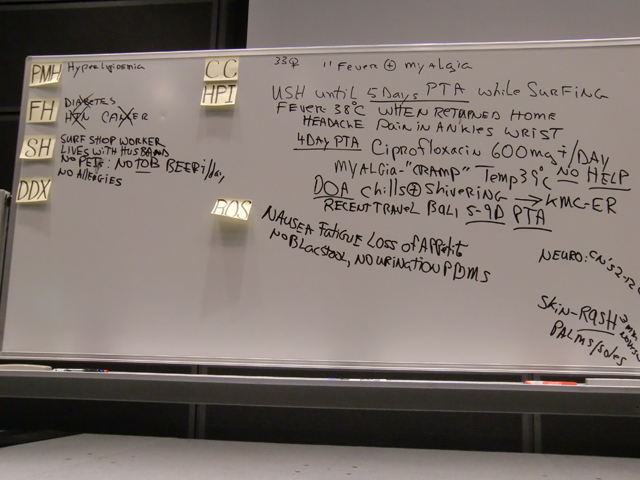 PMH Hyperlipidemia
FH DIABETES
HTN CANCER
SH SURF SHOP WORKER
LIVES WITH HUSBAND
NO PETS: NO TOB BEER 1/day,
NO AllERGIES
DDX
CC 33♀ "Fever ⊕ myAlgia
HPI
USH until 5 Days PTA while SurFING
FEVER: 38°C WHEN RETURNED HOME
HEADACHE PAIN IN ANKLES WRIST
4 DAY PTA Ciprofloxacin 600mg /DAY
MYALGIA-"CRAMP" Temp 39°C NO HELP
DOA Chills ⊕ Shivering → KMC-ER
RECENT TRAVEL BALI 5-9D PTA
ROS
NAUSEA Fatigue Loss of Appetit
NO Blac stool, NO URINATION PBMS
NEURO: CN'S 2-12
SKIN-RASH
PALMS/soles